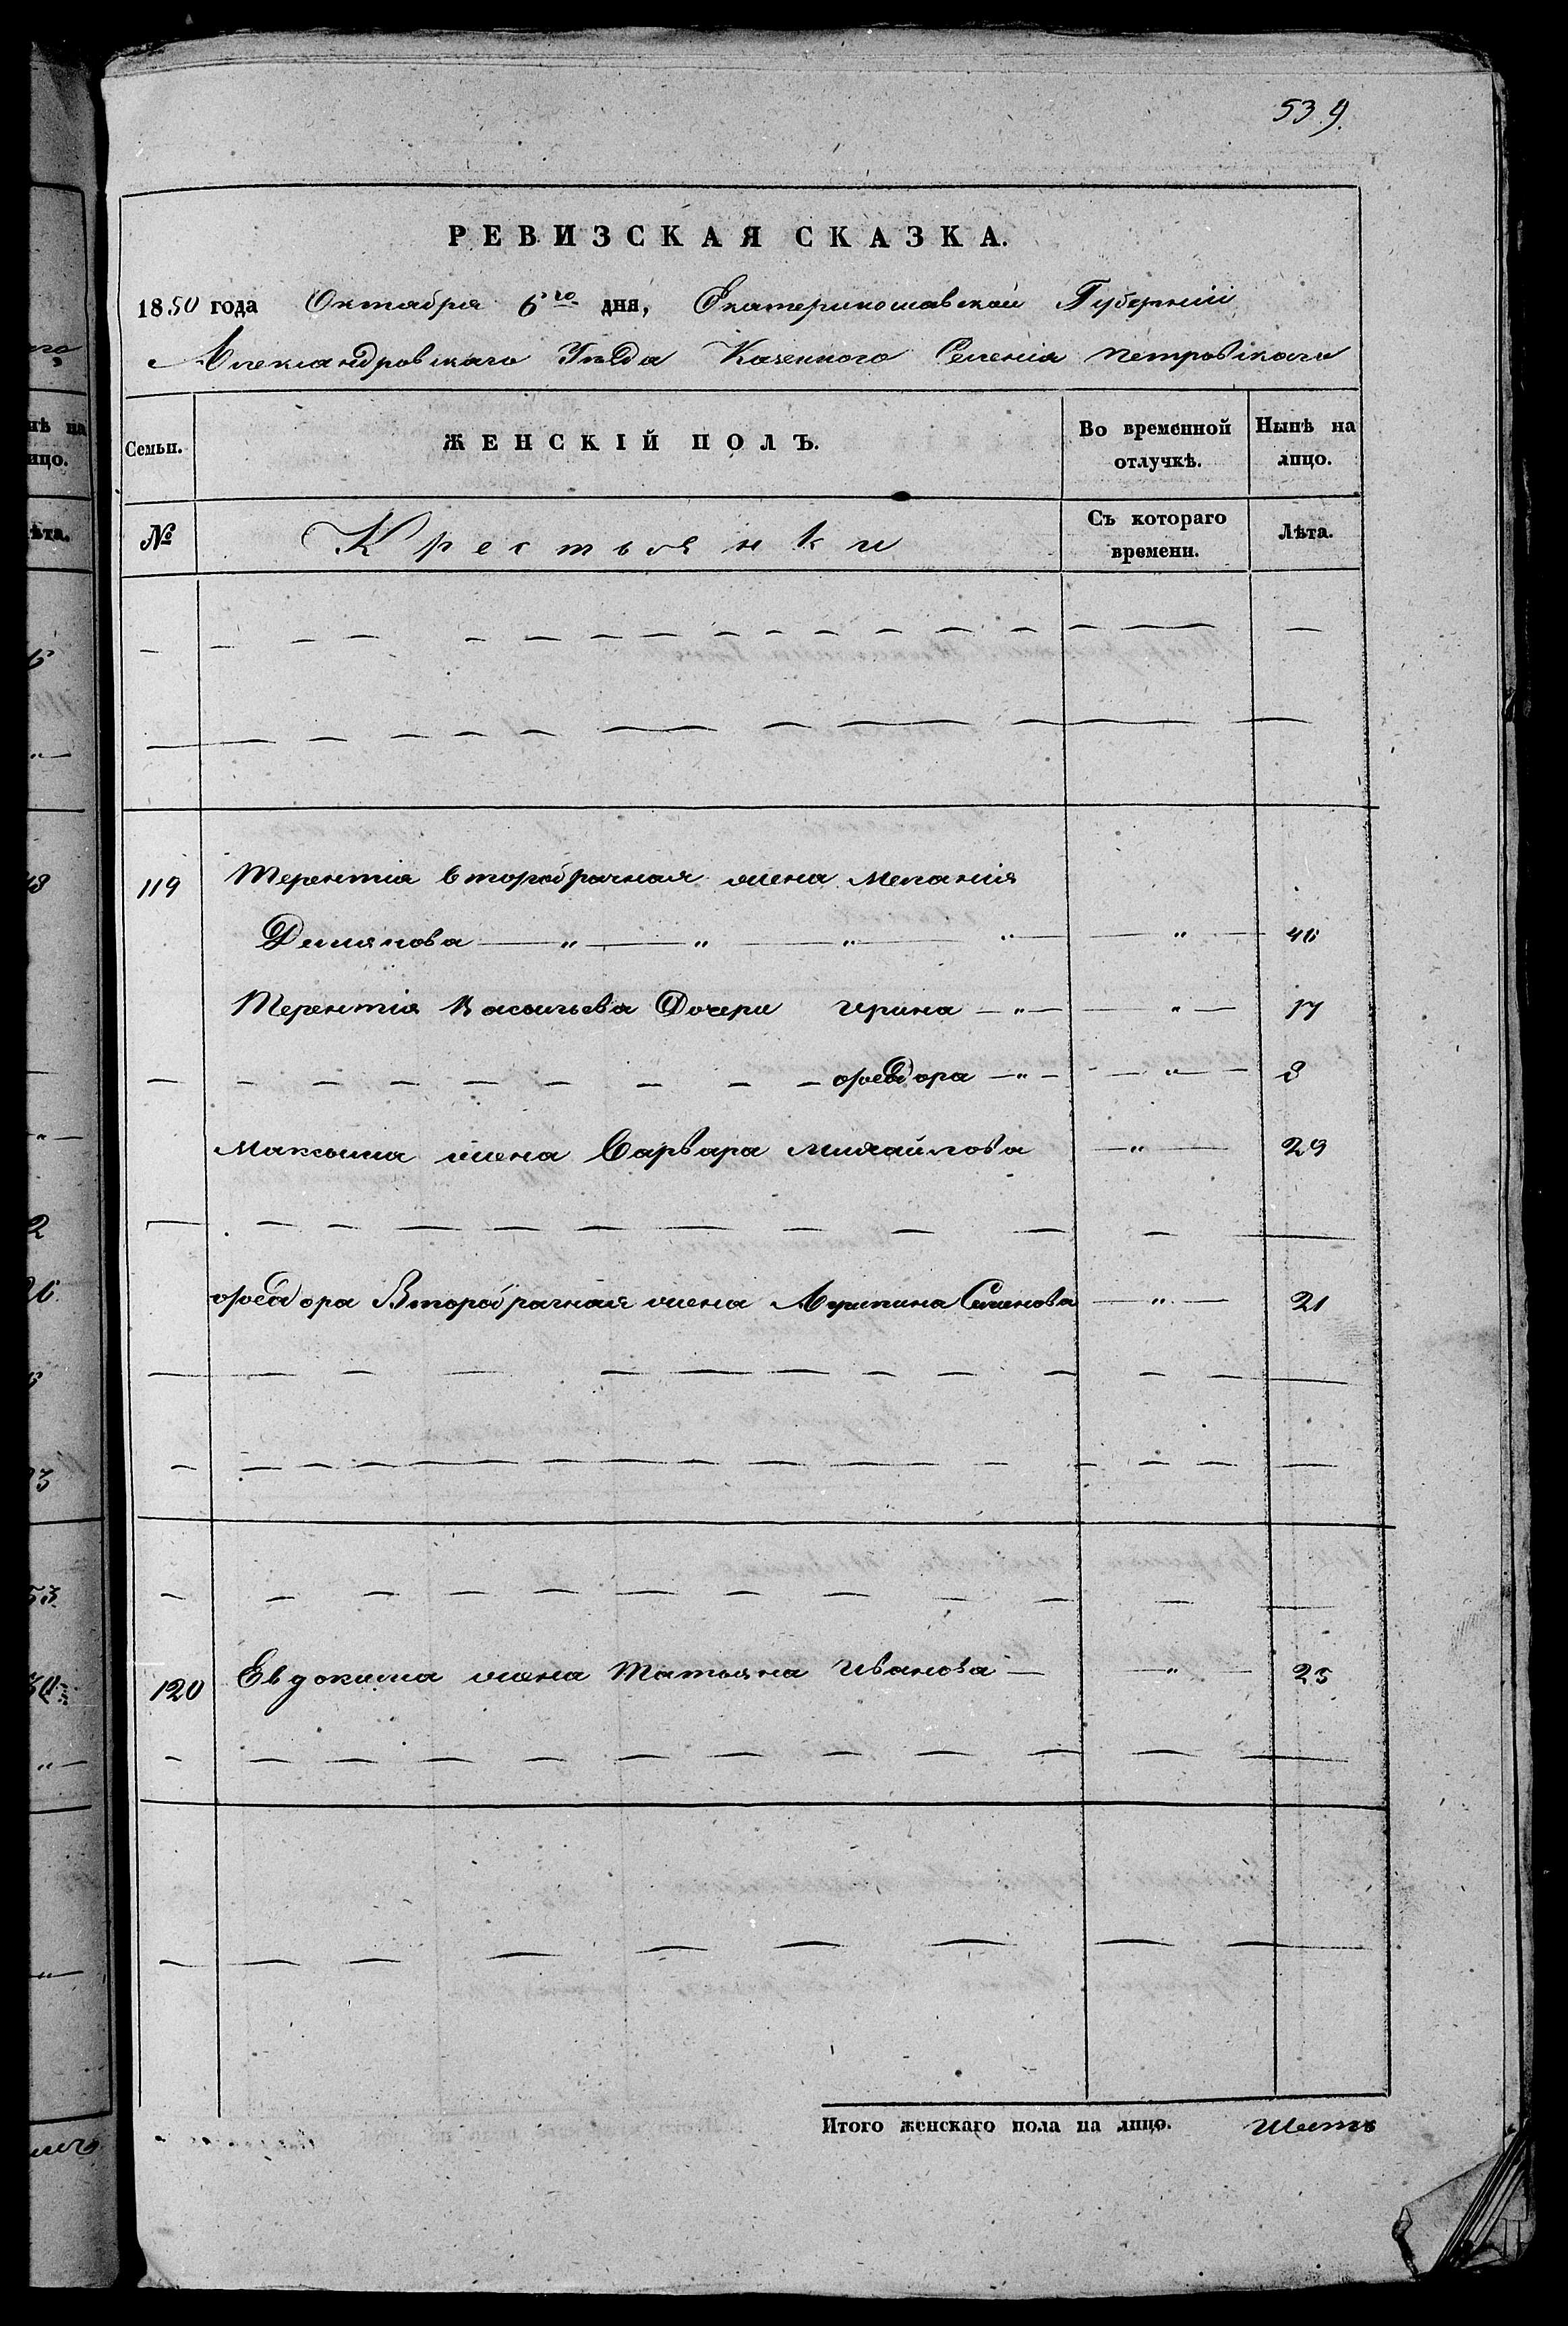 539.
РЕВИЗСКАЯ СКАЗКА.
1850 года Октября 6го дня, Екатеринославской Губернии
Александровскаго Уѣзда Казенного Селенія Петровскаго
Семьи. ЖЕНСКІЙ ПОЛЪ. Во временной отлучкѣ. Нынѣ на лицо.
№ Крестьянки Съ котораго времени. Лѣта.
119 Терентія второбрачная жена Меланія
Демянова — „ — „ — „ — „ — „ — 46
Терентія Васильева Дочери Ирина — „ — „ — 17
Федора — „ — „ — 8
Максима жена Варвара Михайлова — „ — 29
Федора Второбрачная жена Акулина Семенова — „ — 21
120 Евдокима жена Татьяна Иванова — „ — 25
Итого женскаго пола на лицо. Шесть